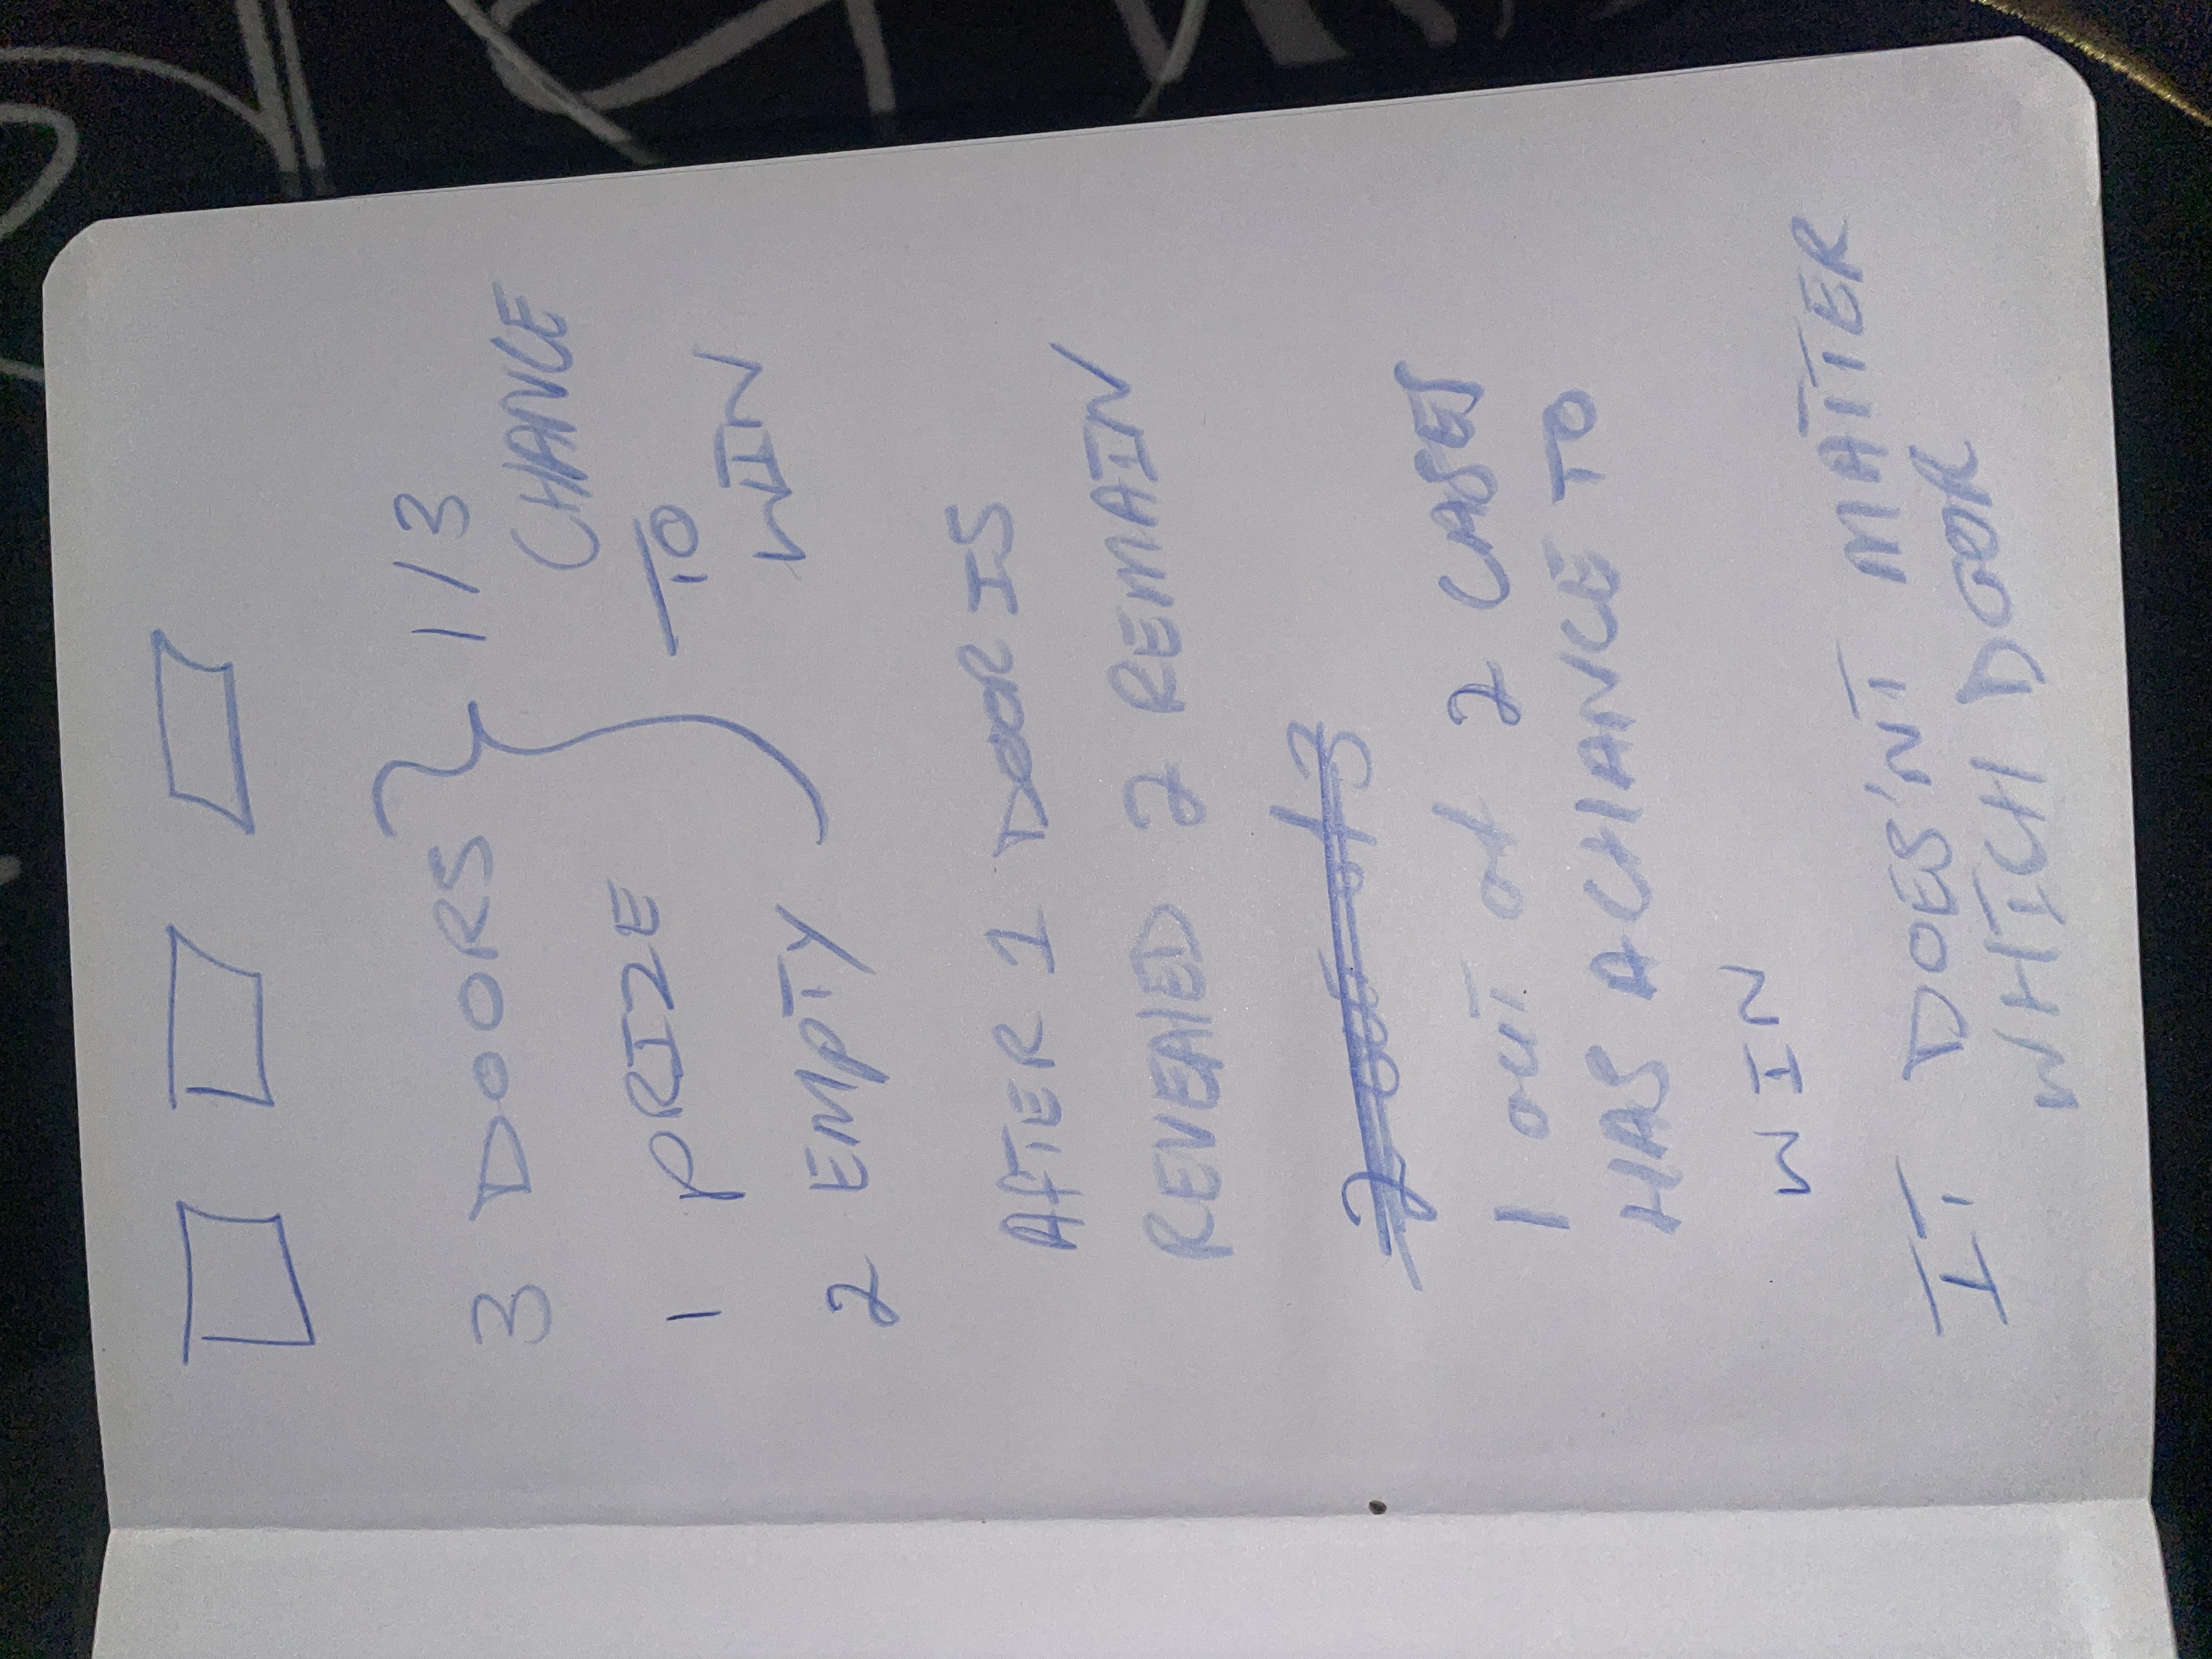 3 DOORS
1/3
CHANCE
TO
WIN
1 PRIZE
2 EMPTY
AFTER 1 DOOR IS
REVEALED 2 REMAIN
2 out of 3
1 out of 2 CASES
HAS A CHANCE TO
WIN
IT DOES'NT MATTER
WHICH DOOR